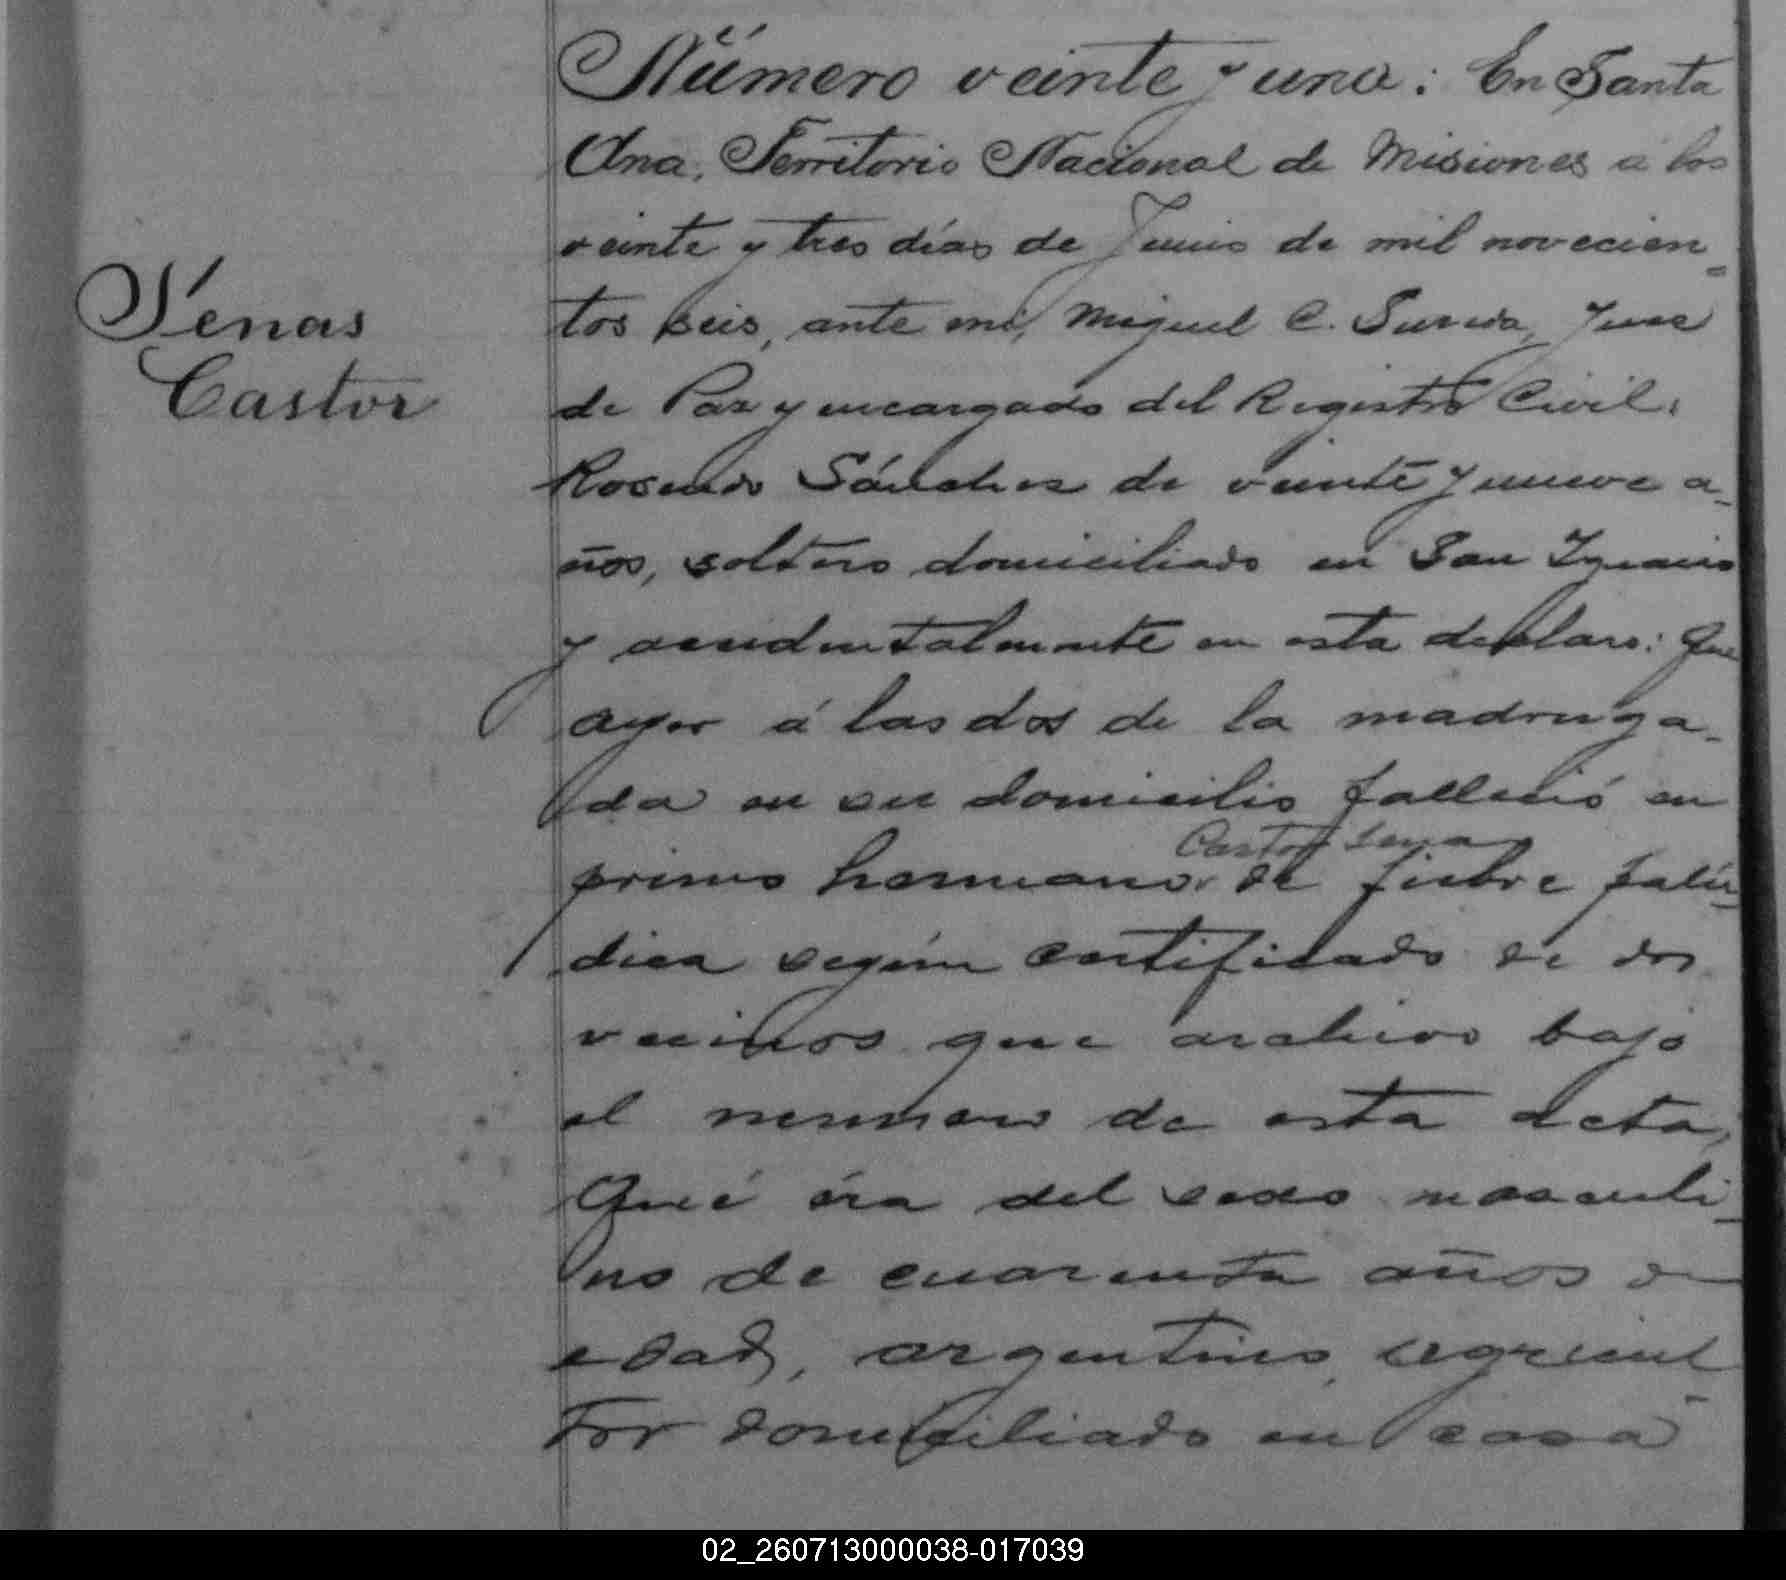 Número veinte y uno: En Santa
Ana, Territorio Nacional de Misiones á los
veinte y tres días de Junio de mil novecien-
Senas
Castor
tos seis, ante mi, Miguel C. Juez
de Paz y encargado del Registro Civil,
Rosendo Sánchez de veinte y nueve a-
ños, soltero domiciliado en San Ignacio
y accidentalmente en esta declaro: Que
ayer á las dos de la madruga-
da en su domicilio falleció su
Castor Sena
primo hermano de fiebre palú-
dica según certificado de dos
vecinos que archivo bajo
el numero de esta acta,
Qué éra del sexo masculi-
no de cuarenta años de
edad, argentino, agricul-
tor domiciliado en casa
02_260713000038-017039